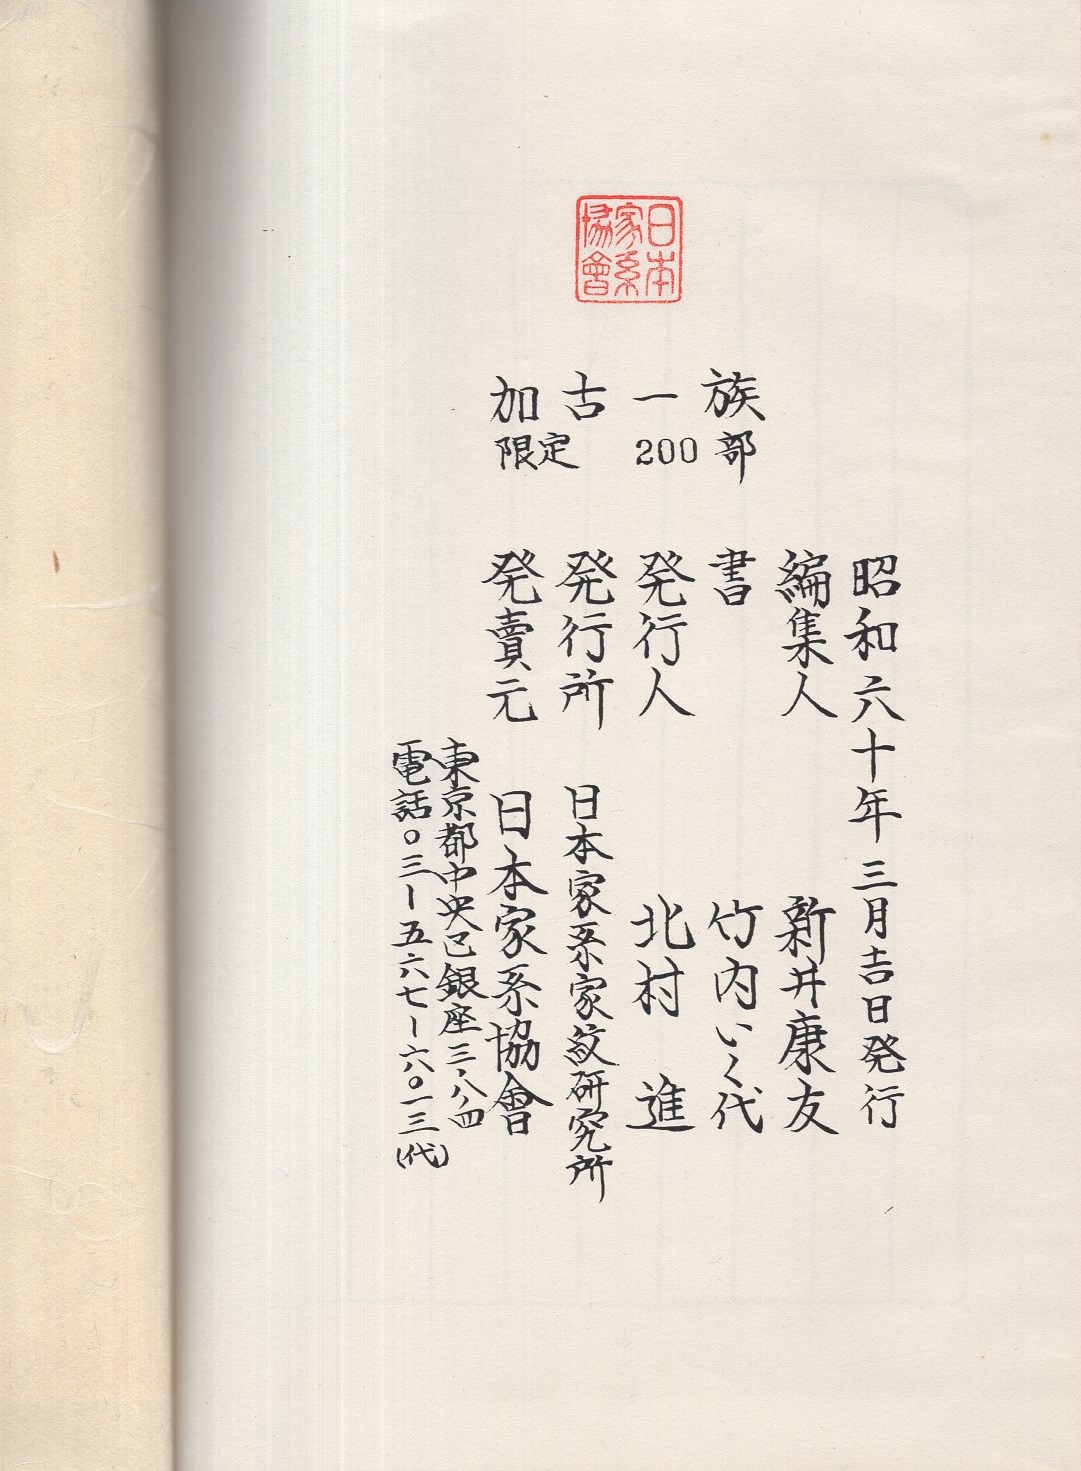 日本
家系
協會
加古一族
限定200部
昭和六十年三月吉日発行
編集人 新井康友
書 竹内いく代
発行人 北村 進
発行所 日本家系家紋研究所
発賣元 日本家系協會
東京都中央区銀座三・八・四
電話〇三ー五六七ー六〇一三(代)